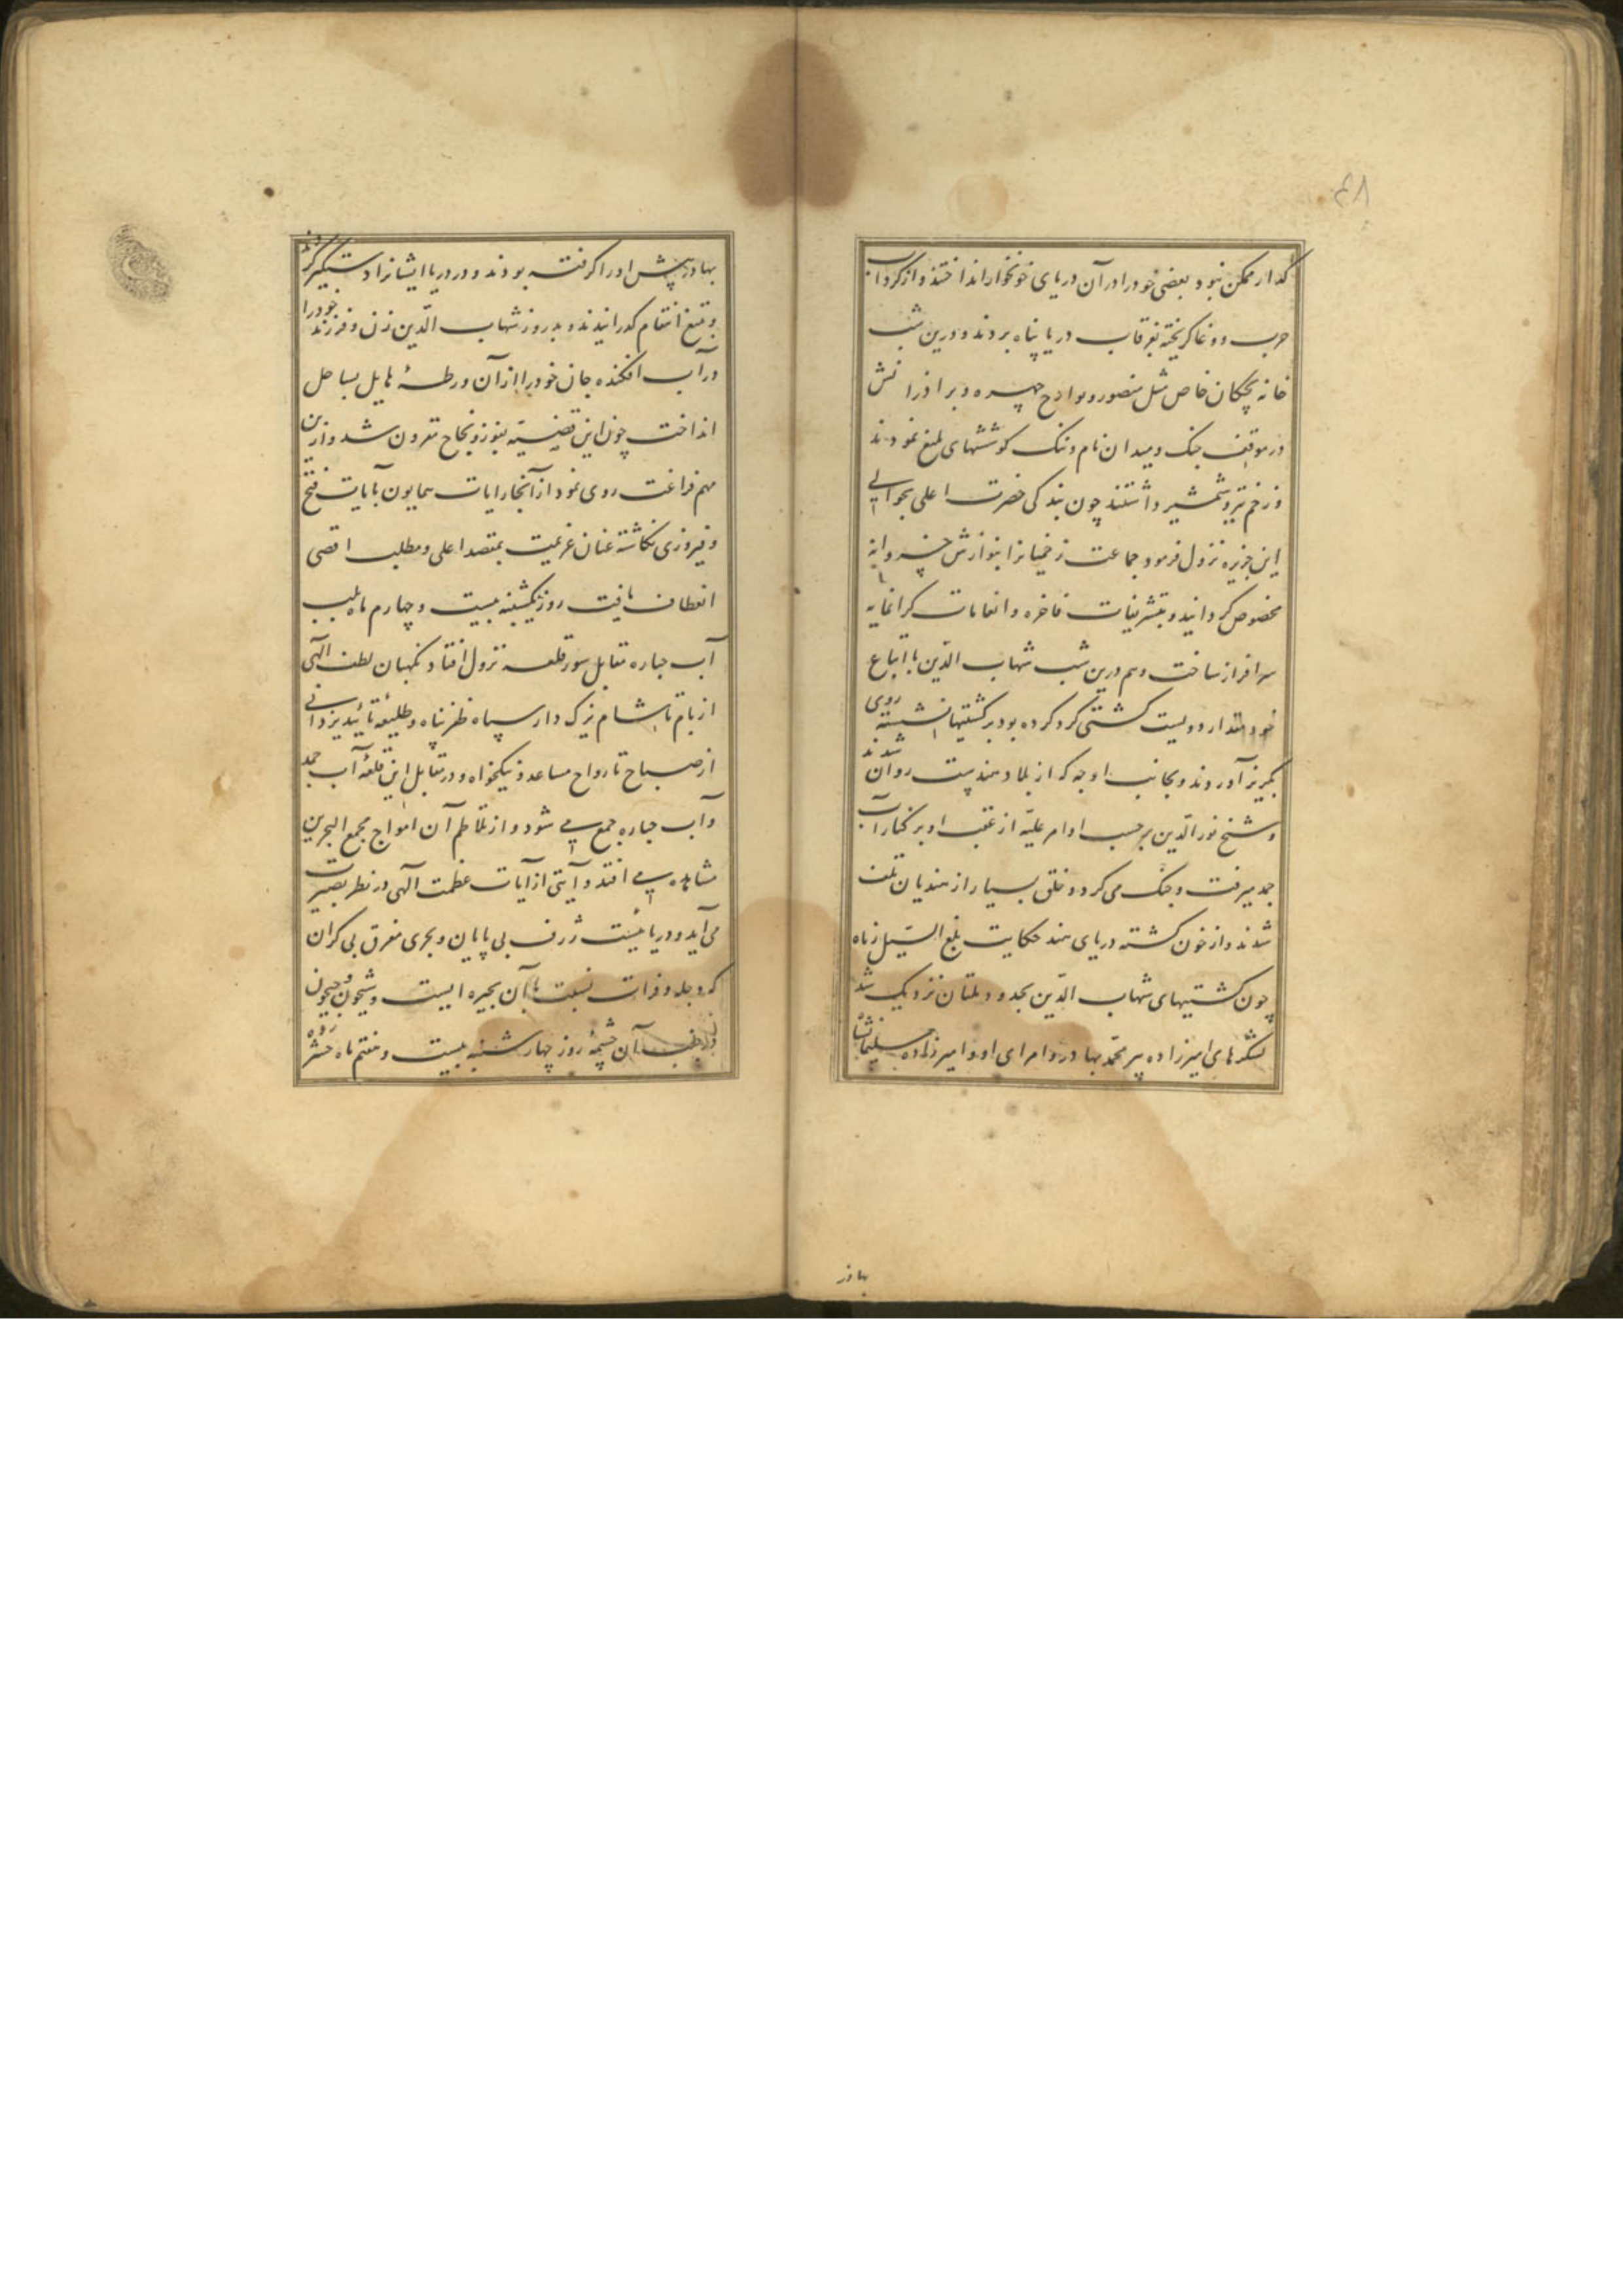 ۴۸
گذار ممکن نبود بعضی خود را در آن دریای خونخوار انداختند و از گرداب
حرب و وغا گریخته بغرقاب دریا پناه بردند و درین شب
خانه بچکان خاص مثل منصور و بوراج چهره و برادرانش
در موقف جنک و میدان نام و ننک کوششهای بلیغ نمودند
و زخم تیر و شمشیر داشتند چون بندکی حضرت اعلی بحوالی
این جزیره نزول فرمود جماعت زخمیانرا بنوازش خسروانه
مخصوص کردانید و بتشریفات فاخره و انعامات کرانمایه
سرافراز ساخت و هم درین شب شهاب الدّین با اتباع
خود مقدار دویست کشتی کرد کرده بود بر کشتیها نشسته روی
بکریز آوردند و بجانب اوجه که از بلاد هندست روان شدند
و شیخ نور الدّین بر حسب اوامر علیّه از عقب او بر کنار آب
جمد میرفت و جنک می کرد و خلق بسیار از هندیان تلف
شدند و از خون کشته دریای هند حکایت بلغ السّیل زباه
چون کشتیهای شهاب الدّین بحدود ملتان نزدیک شد
لشکرهای امیرزاده پیر محمّد بهادر و امرای او و امیرزاده سلیمانشاه
بهادر
بهادر پیش او را کرفته بودند و در دریا ایشانرا دستگیر کردند
و بتیغ انتقام کذرانیدند و بد روز شهاب الدّین زن و فرزند خود را
در آب افکنده جان خود را از آن ورطهٔ هایل بساحل
انداخت چون این قضیّه بفوز و نجاح مقرون شد و ازین
مهم فراغت روی نمود از آنجا رایات همایون بآیات فتح
و فیروزی نکاشته عنان عزیمت بمقصد اعلی و مطلب اقصی
انعطاف یافت روز یکشنبه بیست و چهارم ماه بلب
آب جماره مقابل سور قلعه نزول افتاد نکهبان لطف الهی
از بام تا شام یزک دار سپاه ظفر پناه و طلیعهٔ تأیید یزدانی
از صباح تا رواح مساعد و نیکخواه و در مقابل این قلعه آب جمد
و آب جماره جمع می شود و از تلاطم آن امواج مجمع البحرین
مشاهده می افتد و آیتی از آیات عظمت آلهی در نظر بصیرت
می آید و دریائیست ژرف بی پایان و بحری مغرق بی کران
که دجله و فرات نسبت با آن بحیره ایست و سیحون و جیحون
آن چشمهٔ روز چهارشنبه بیست و هفتم ماه